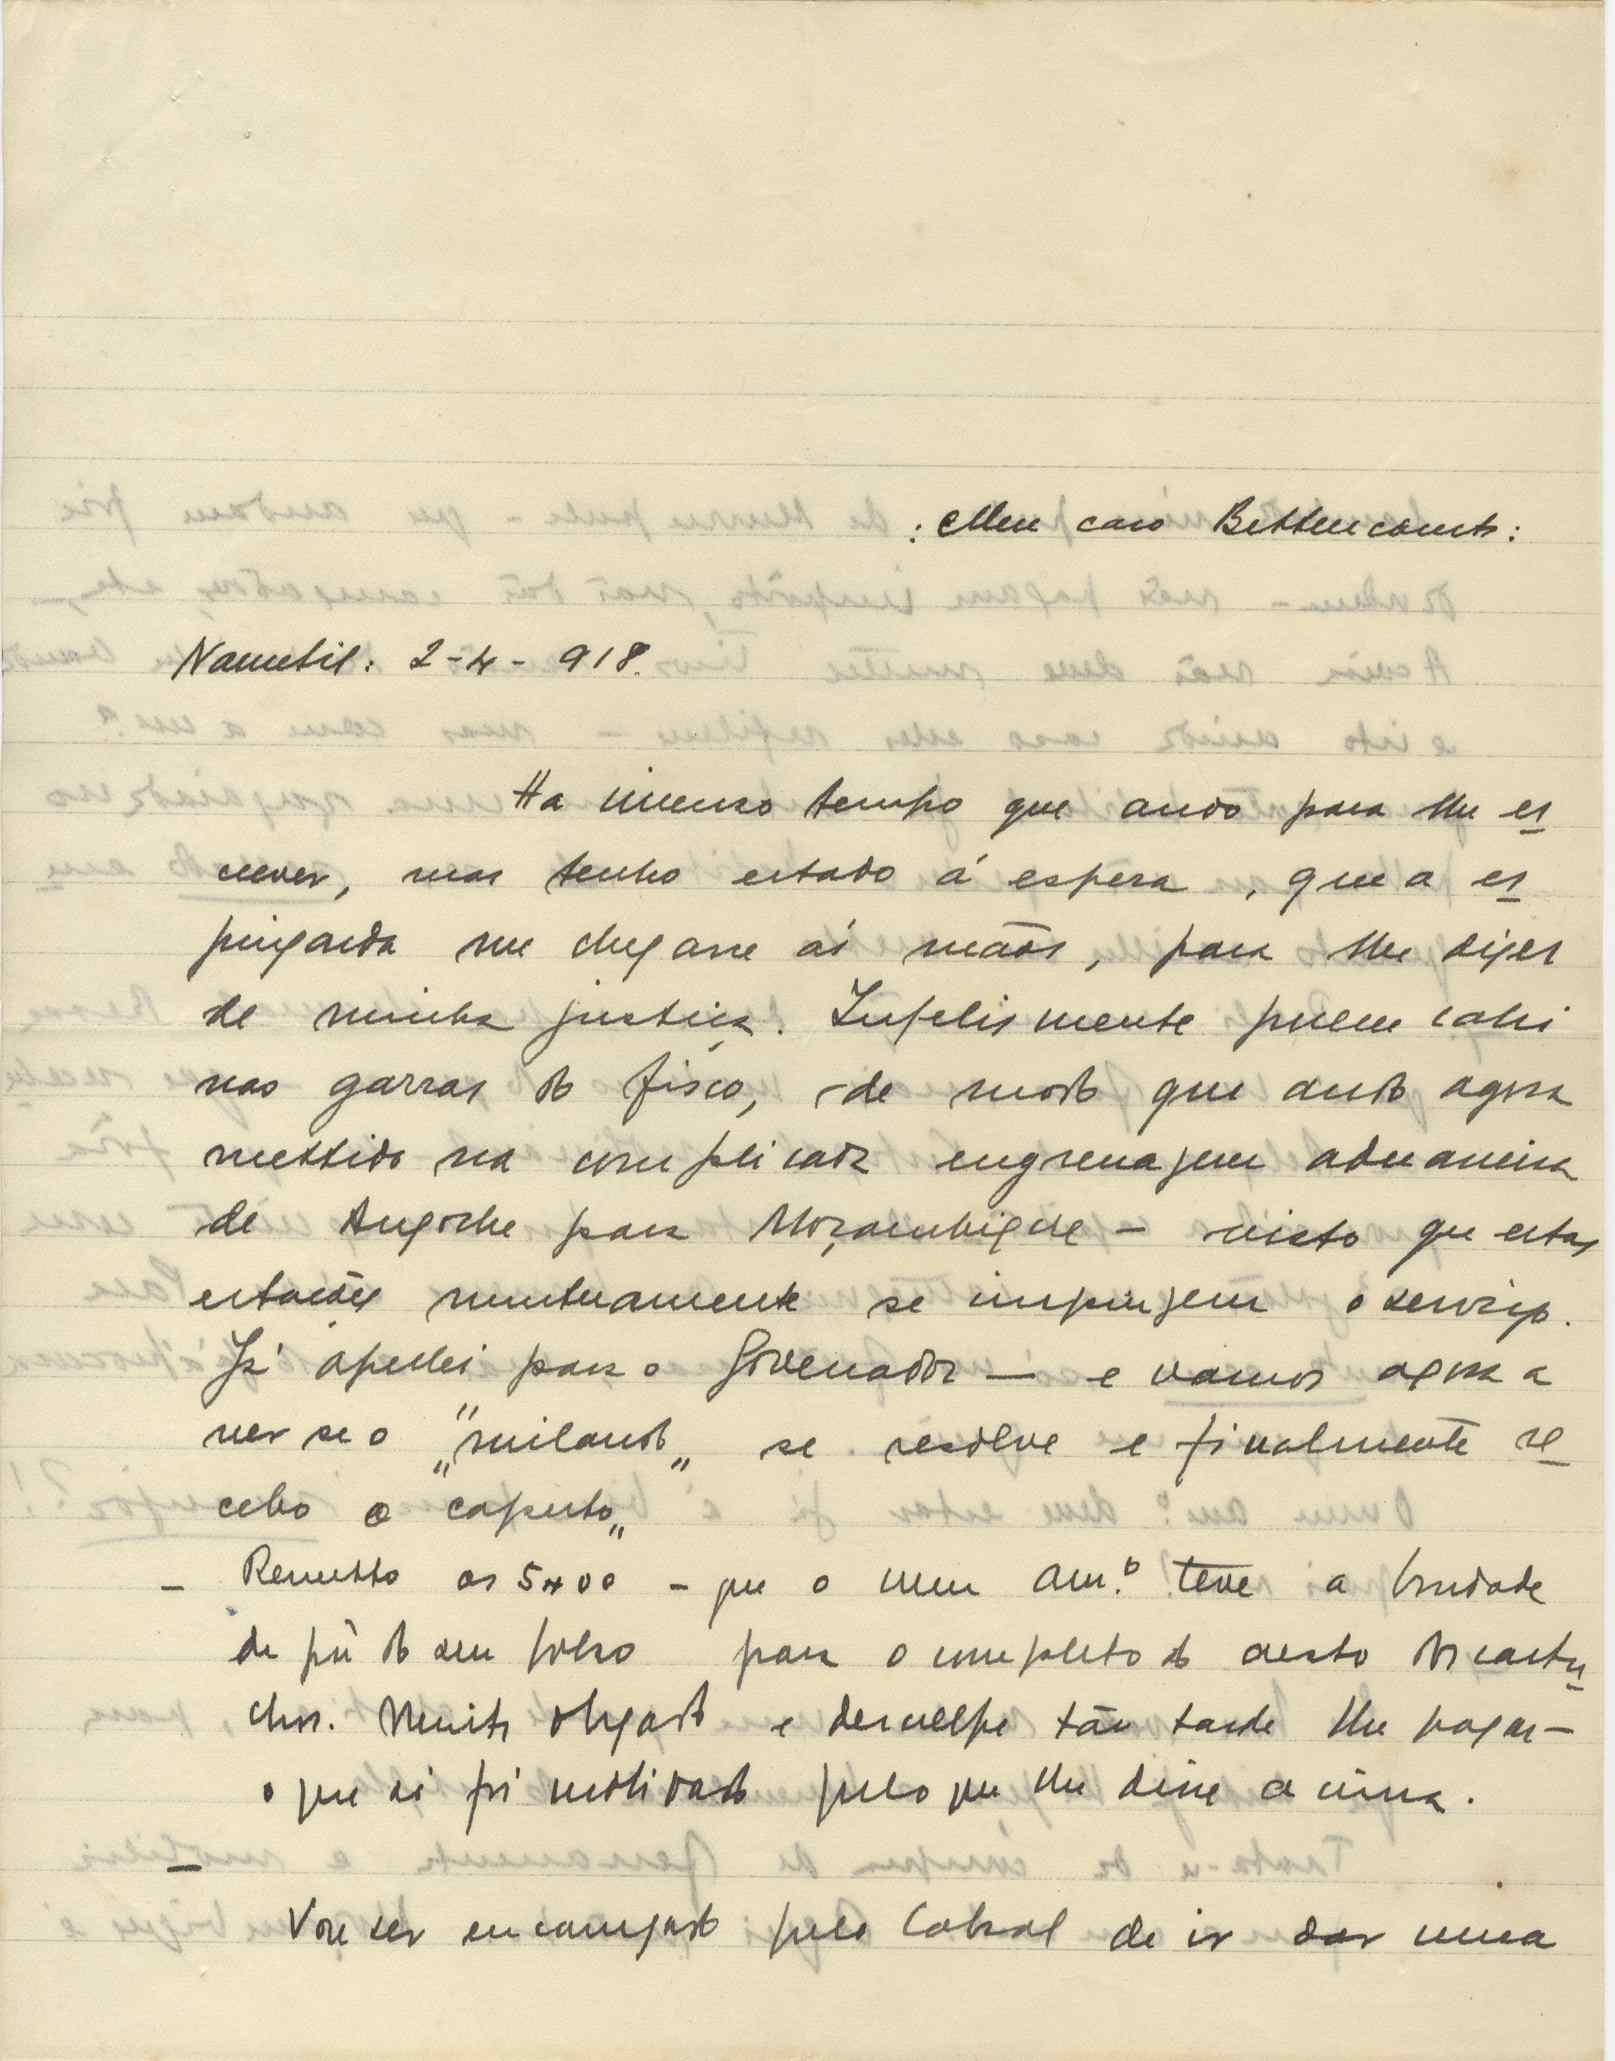 : Meu caro Bettencourt :
Nametil : 2-4-918.
Ha imenso tempo que ando para lhe es
crever, mas tenho estado á espera, que a es
pingarda me chegasse ás mãos, para lhe dizer
de minha justiça. Infelismente porem cahi
nas garras do fisco, de modo que ando agora
mettido na complicada engrenagem aduaneira
de Angoche para Moçambique – visto que estas
estações mutuamente se impingem o serviço.
Já apellei para o Governador – e vamos agora a
ver se o "milando" se resolve e finalmente re
cebo o caputo"
– Remetto os 5$00 – que o meu am.º teve a bondade
de pôr do seu bolso para o completo do custo dos cartu
chos. Muito obrgado e desculpe tão tarde lhe pagar –
o que só foi motivado pelo que lhe disse acima.
–
Vou ser encarregado pelo Cabral de ir dar uma